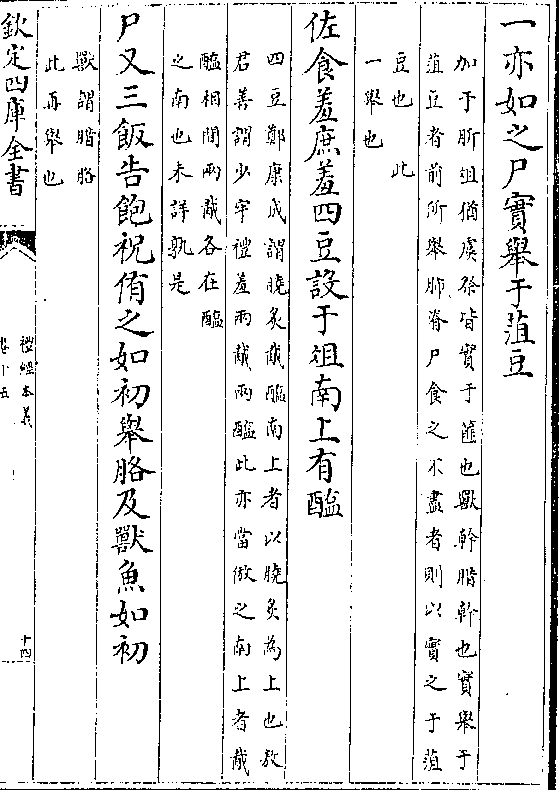 一亦如之尸實舉于菹豆
加于肵俎猶虞祭皆實于篚也獸幹腊幹也實舉于
菹豆者前所舉肺脊尸食之不盡者則以實之于菹
豆也　此
一舉也
佐食羞庶羞四豆設于俎南上有醢
四豆鄭康成謂膮炙胾醢南上者以膮炙為上也敖
君善謂少牢禮羞兩胾兩醢此亦當倣之南上者胾
醢相間兩胾各在醢
之南也未詳孰是
尸又三飯告飽祝侑之如初舉骼及獸魚如初
獸謂腊骼
此再舉也
欽定四庫全書
禮經本義
卷十五
十四